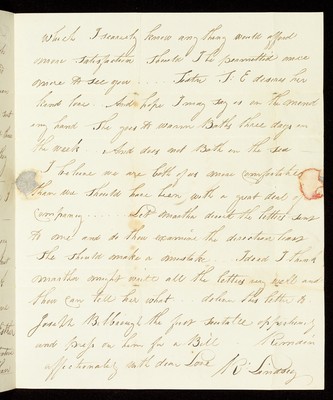 Which I scarcely know any thing would afford
more satisfaction should I be permitted once
more to see you .... Sister S. E desires her
kind love. And hope I may say is on the mend
my hand She goes to warm Baths three days in
the week And does not Bath in the sea —
I believe we are both of us more comfortable
than we should have been with a great deal of
company .... Let Martha direct the letters sent
to me and do thou examine the direction least
She should make a mistake. Indeed I think
Martha might write all the letters very well and
thou can tell her what .. deliver this letter to
Joseph the first suitable oppertunity
and Press on him for a Bill
affectionately with dear Love
R Lindsey